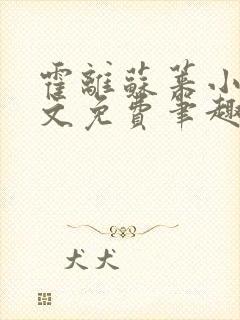 霍離蘇慕小
文免費筆趣
犬犬